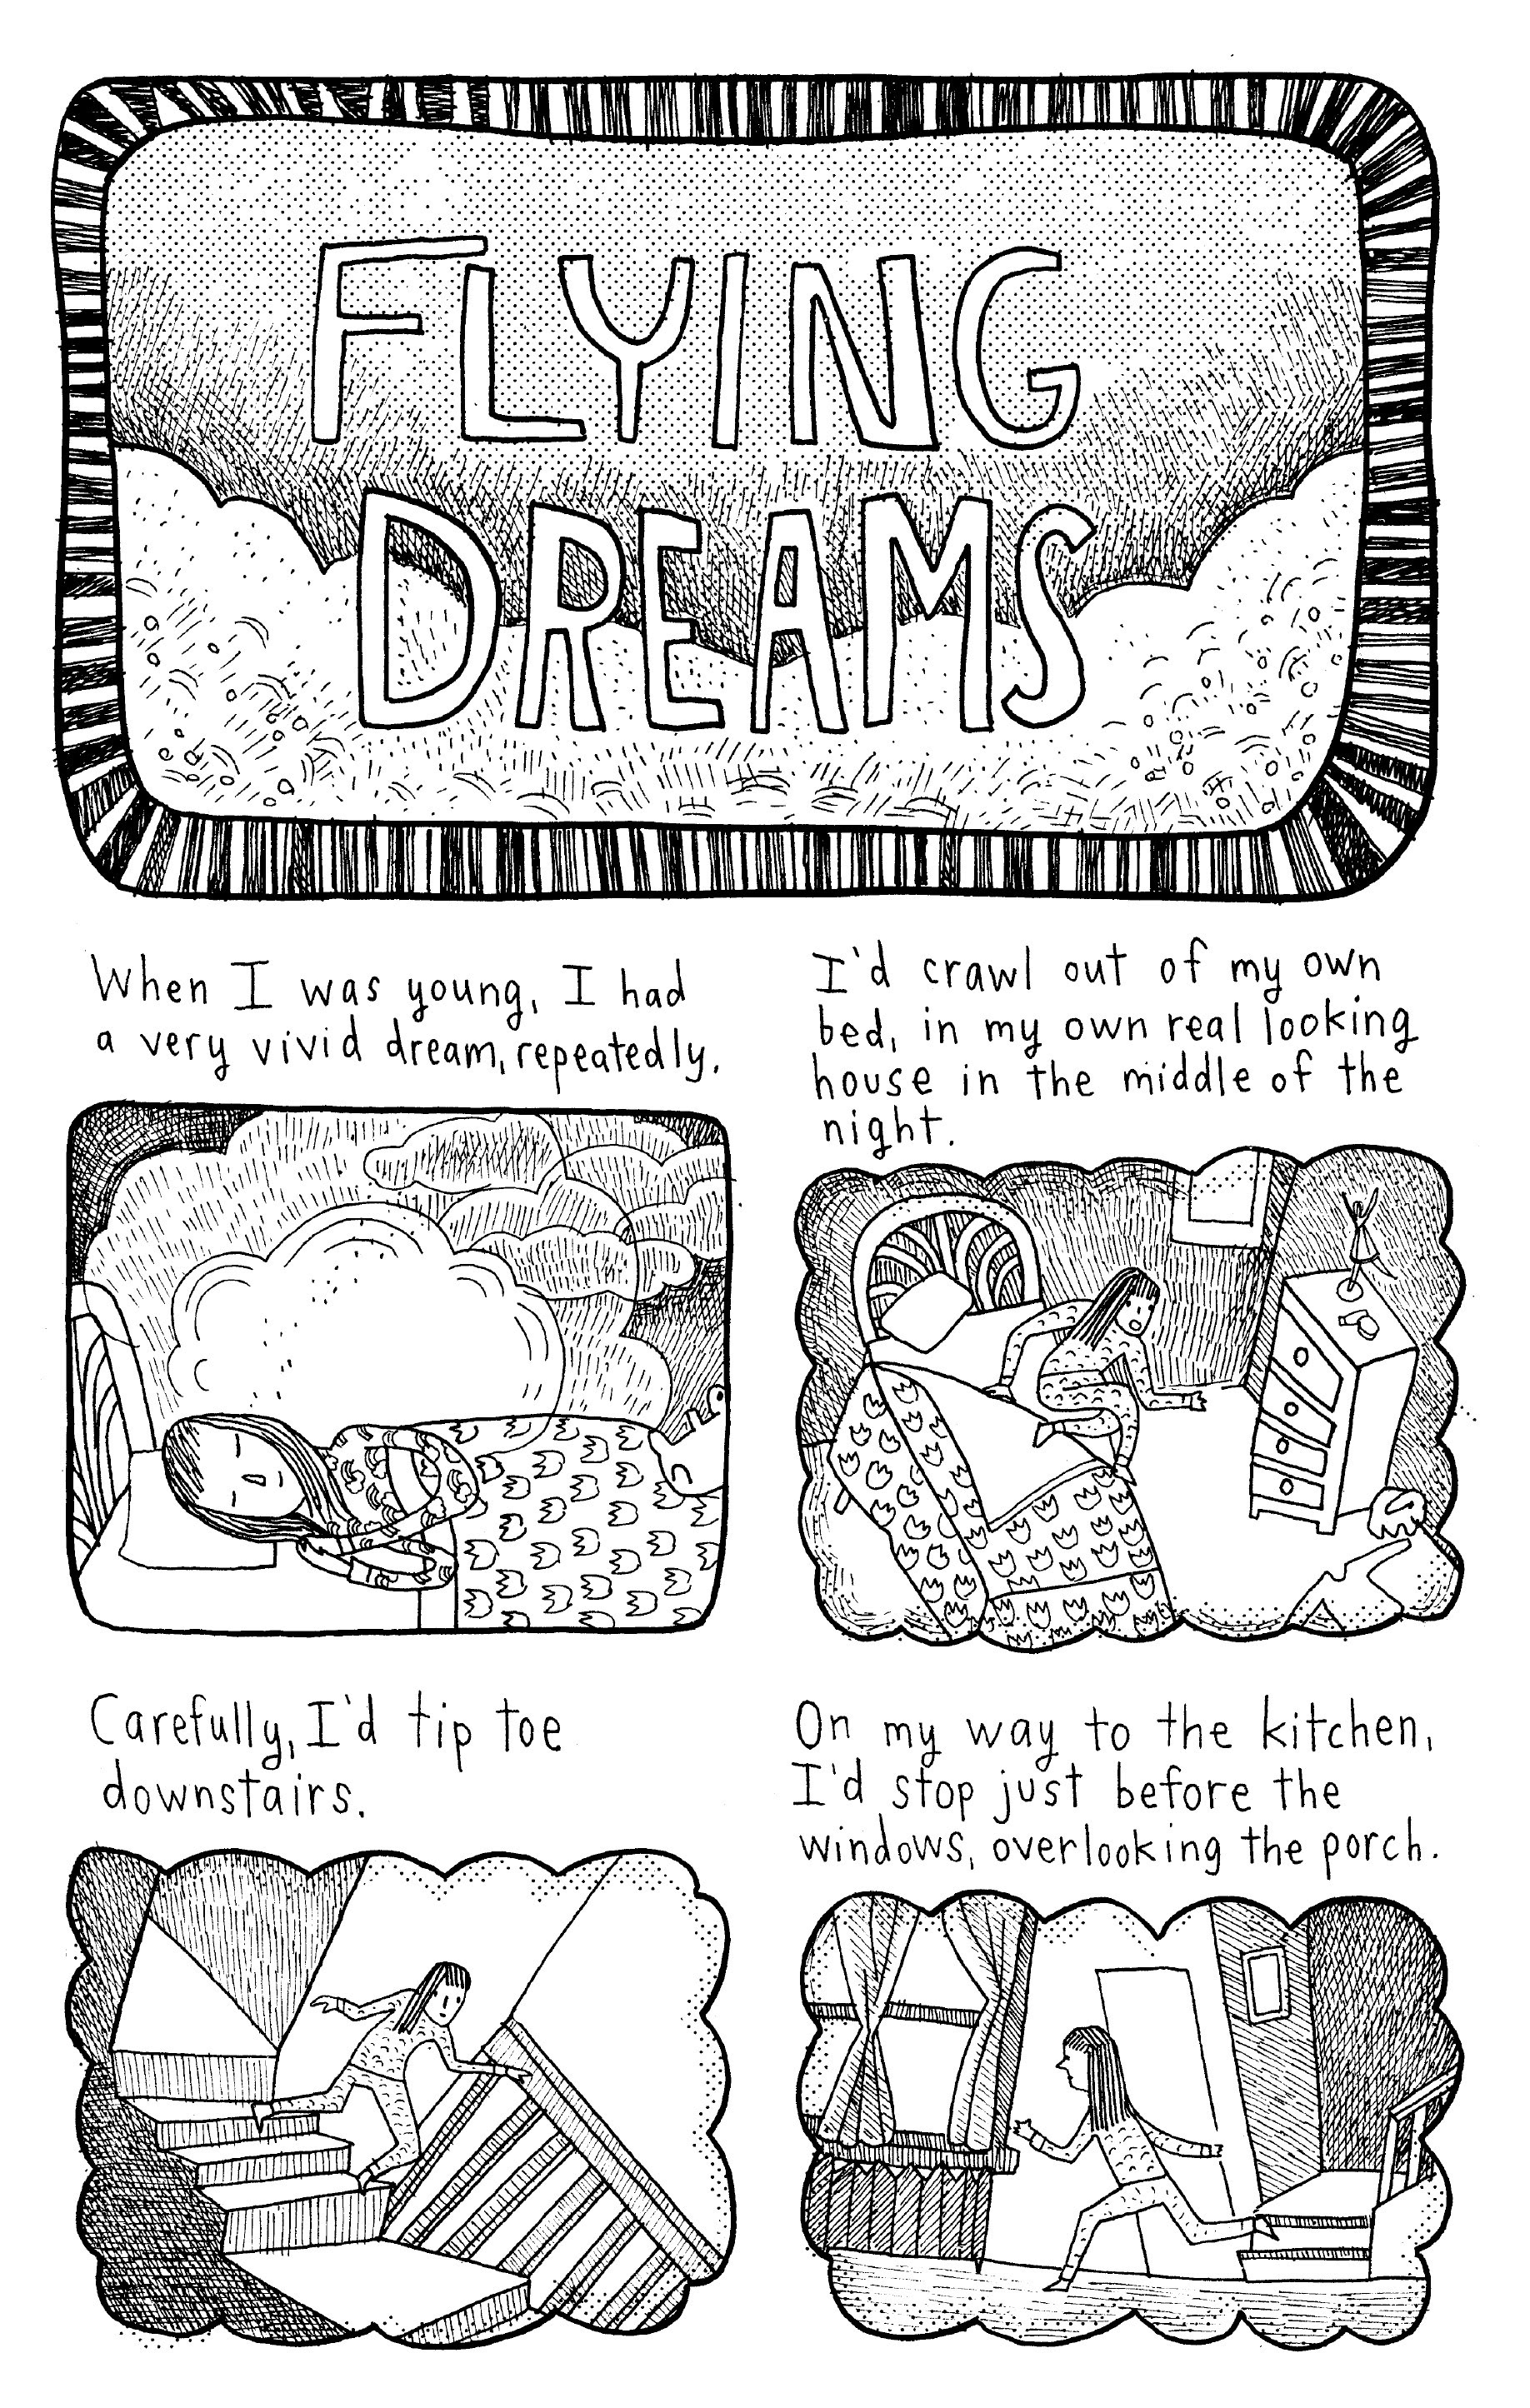 FLYING
DREAMS
When I was young, I had
a very vivid dream, repeatedly.
I'd crawl out of my own
bed, in my own real looking
house in the middle of the
night.
Carefully, I'd tip toe
downstairs.
On my way to the kitchen,
I'd stop just before the
windows, overlooking the porch.